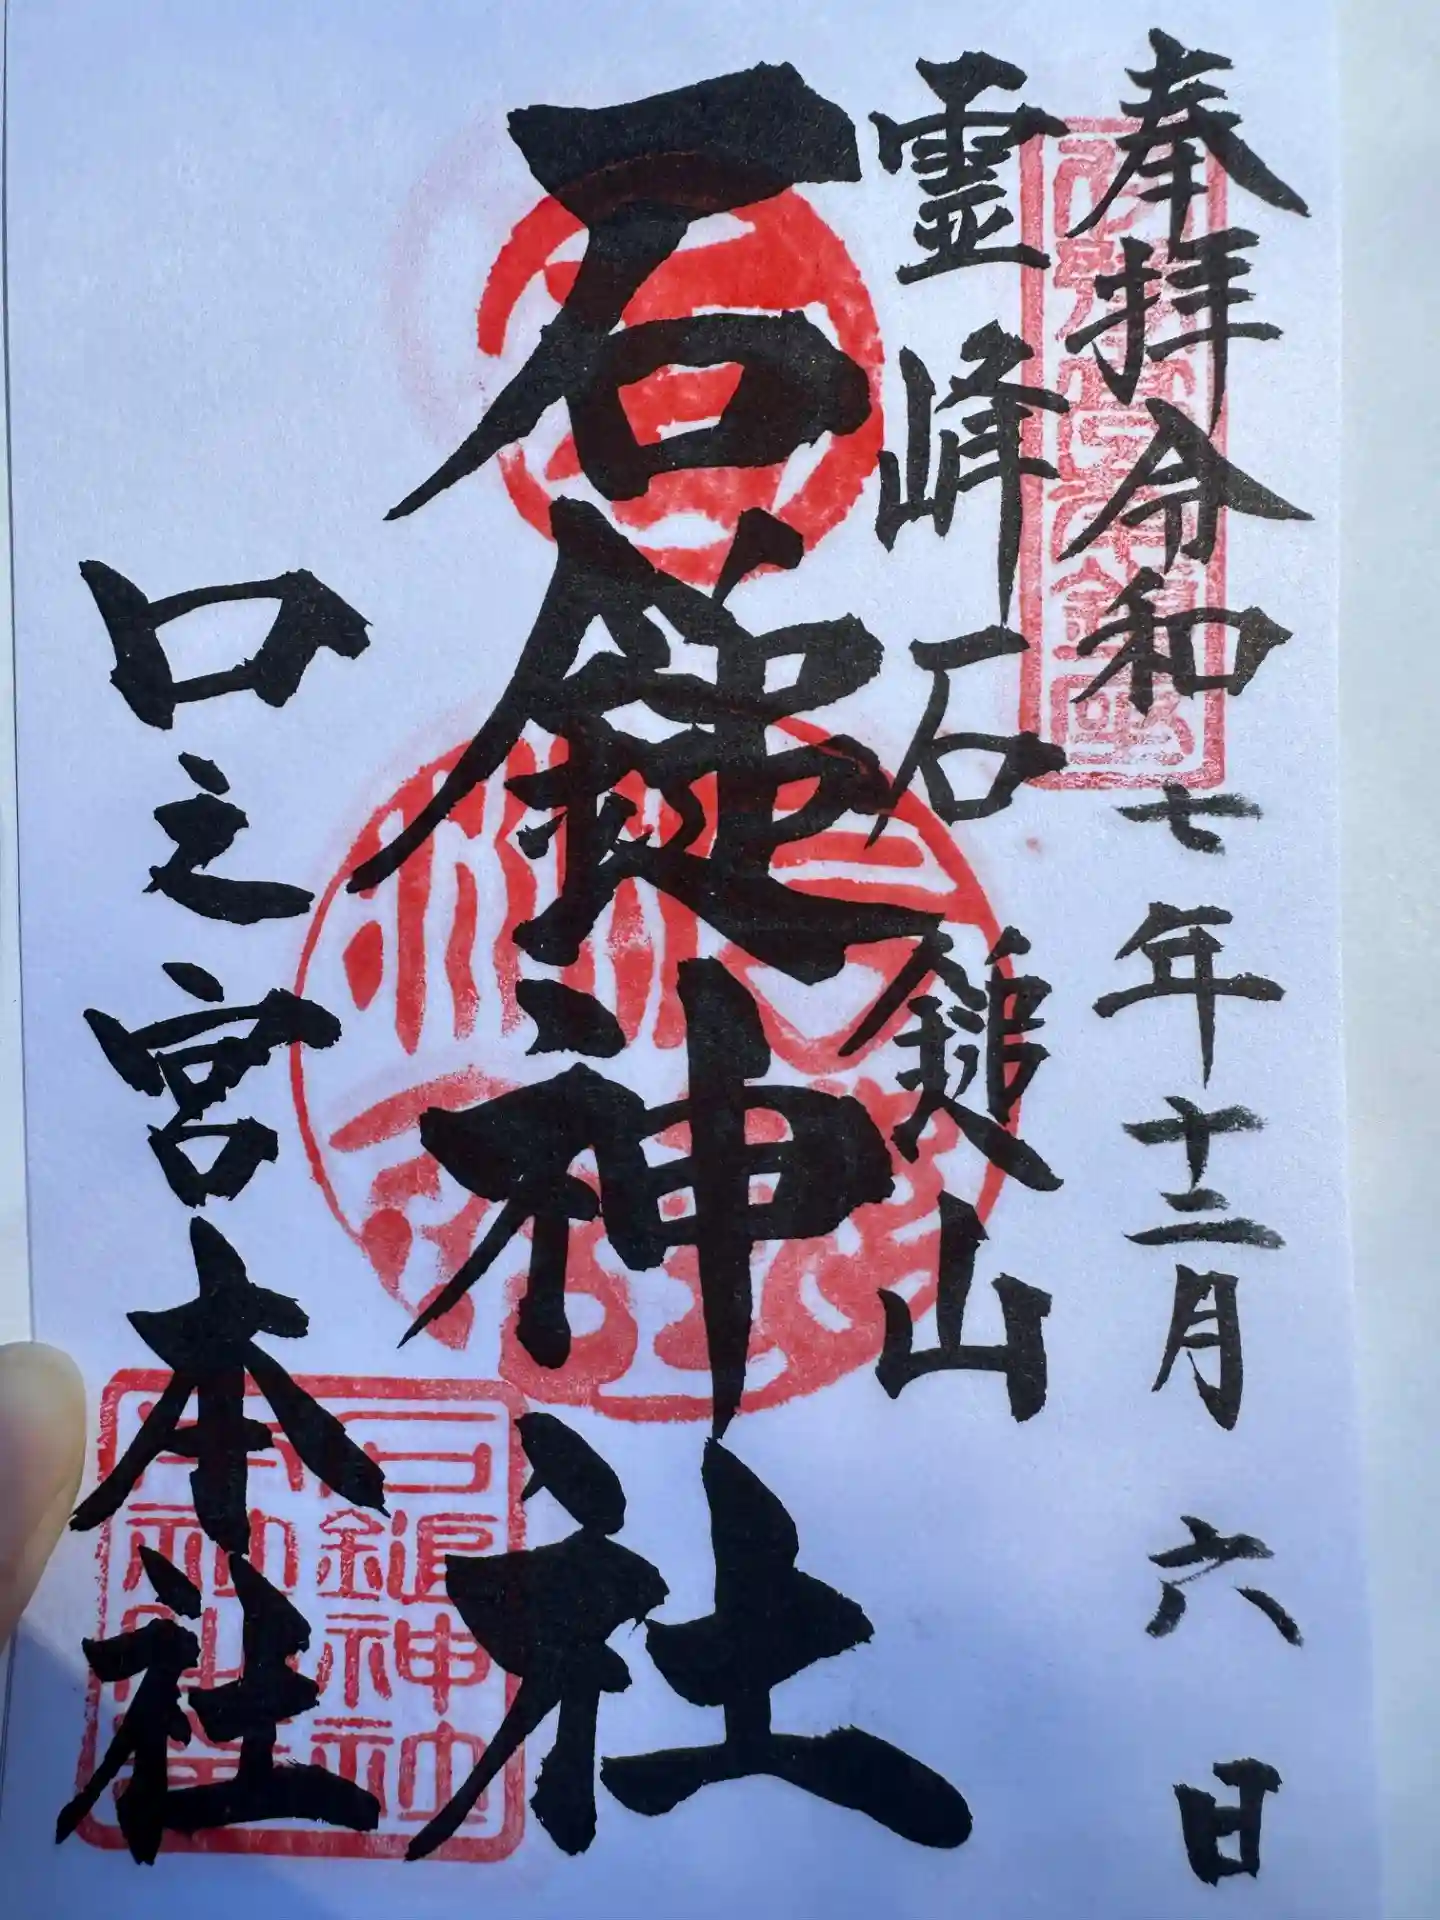 奉拝令和七年十二月六日
霊峰石鎚山
石鎚神社
口之宮本社
石鎚神社